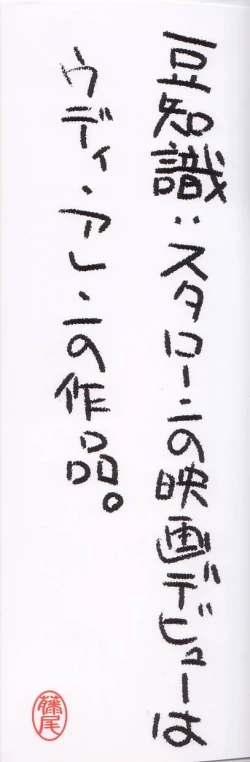 豆知識:スタローンの映画デビューは
ウディ・アレンの作品。
藤尾